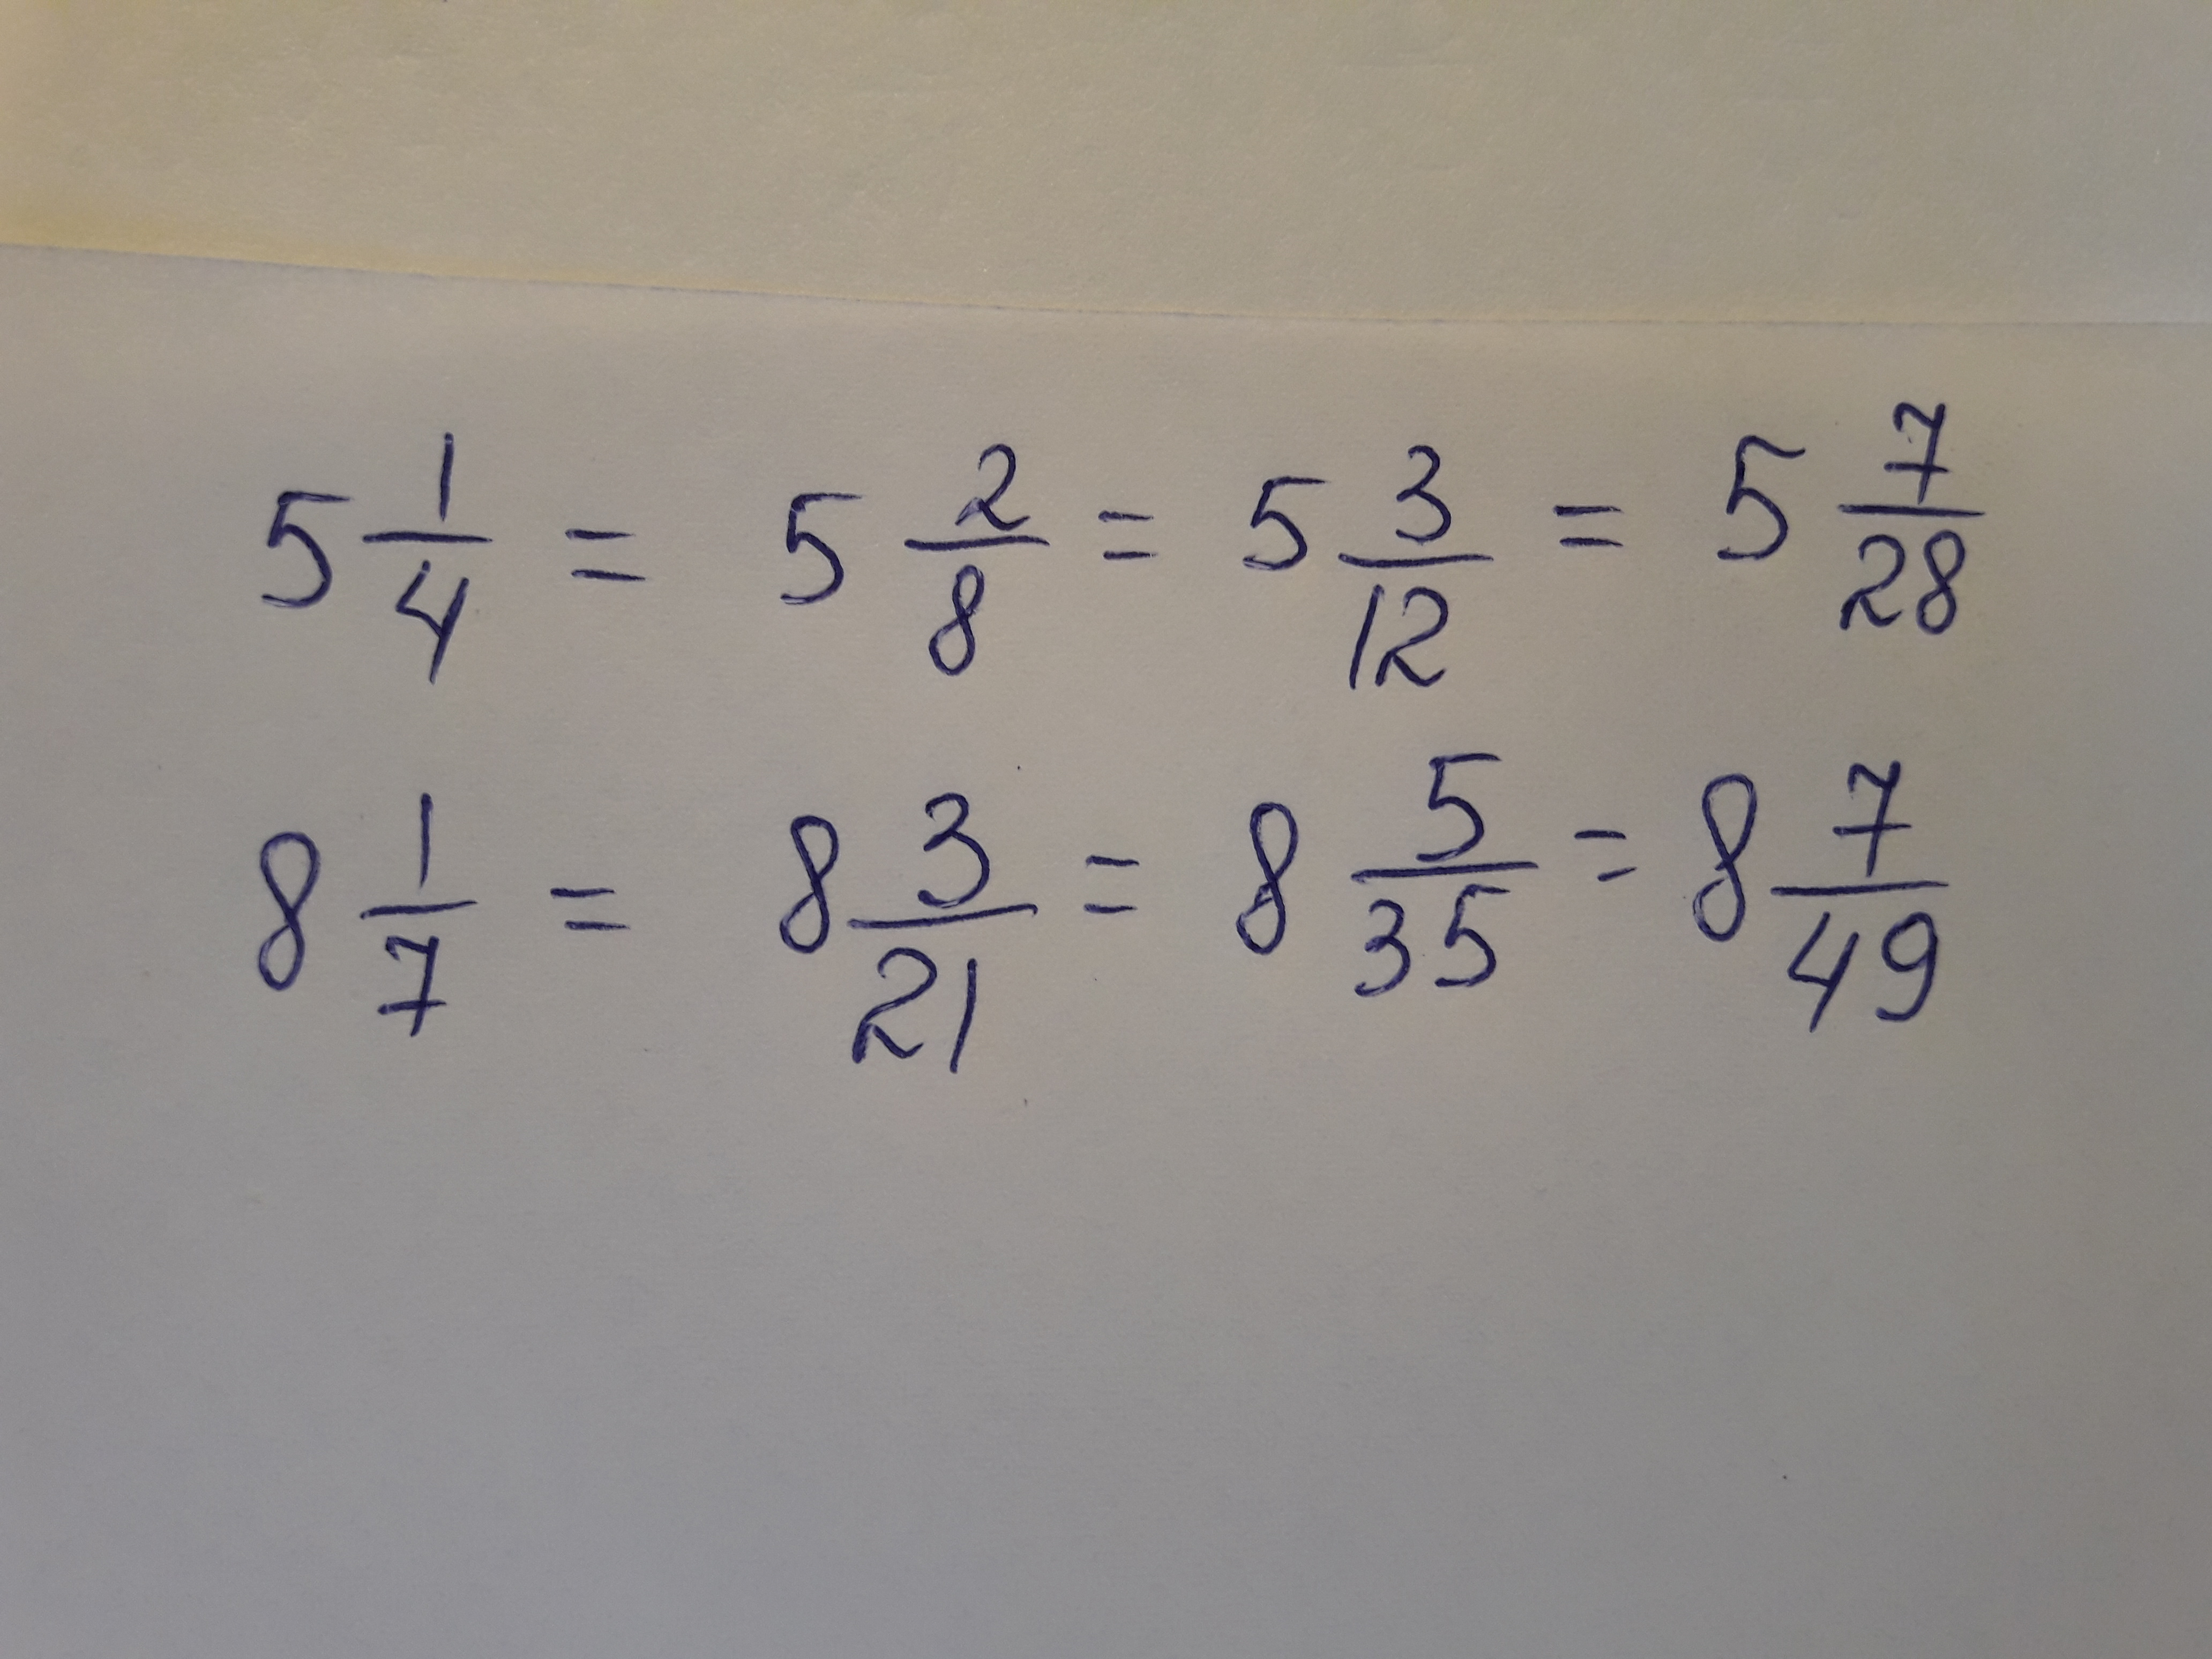 5 1/4 = 5 2/8 = 5 3/12 = 5 7/28
8 1/7 = 8 3/21 = 8 5/35 = 8 7/49